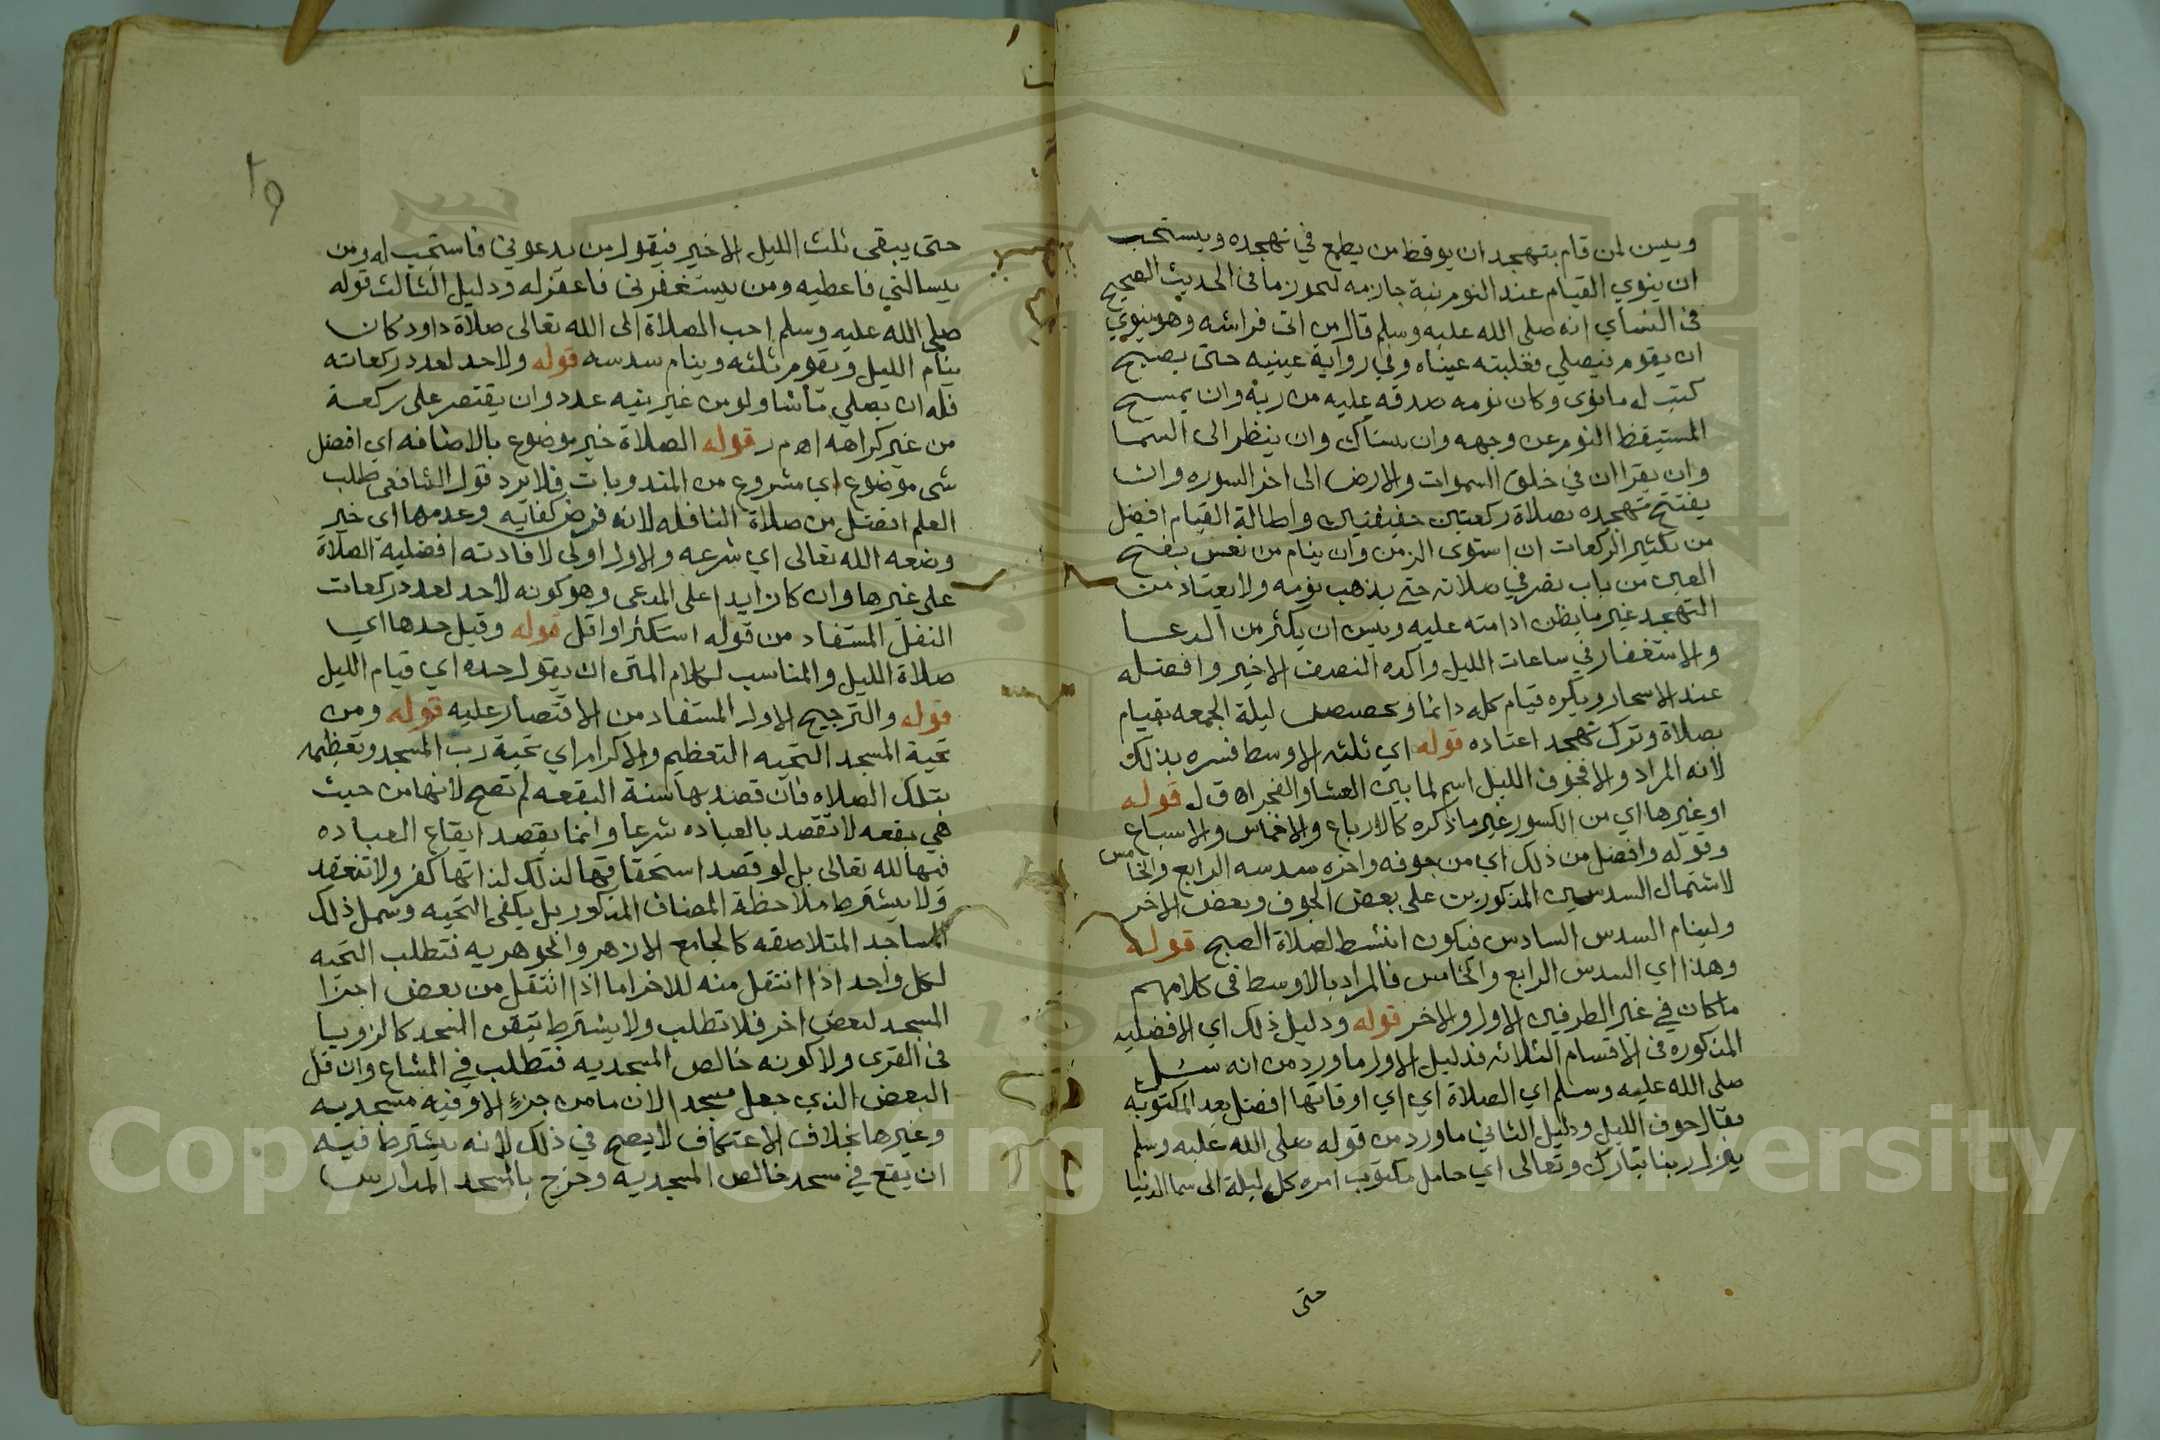 ويسن لمن قام بتهجد ان يوقظ من يطمع في تهجده ويستحب
ان ينوي القيام عند النوم نية جازمه ليحوز ما في الحديث الصحيح
في النساي انه صلى الله عليه وسلم قال من اتى فراشه وهو ينوي
ان يقوم فيصلي فغلبته عيناه وفي رواية عينيه حتى يصبح
كتب له ما نوى وكان نومه صدقه عليه من ربه وان يمسح
المستيقظ النوم عن وجهه وان يستاك وان ينظر الى السما
وان يقرا ان في خلق السموات والارض الى اخر السوره وان
يفتتح تهجده بصلاة ركعتين خفيفتين واطالة القيام افضل
من تكثير الركعات ان استوى الزمن وان ينام من نعس بفتح
العين من باب نصر في صلاته حتى يذهب نومه ولا يعتاد من
التهجد غير ما يظن ادامته عليه ويسن ان يكثر من الدعا
والاستغفار في ساعات الليل واكده النصف الاخير وافضله
عند الاسحار ويكره قيام كله دائما وتخصيص ليلة الجمعه بقيام
بصلاة وترك تهجد اعتاده قوله اي ثلثه الاوسط فسره بذلك
لانه المراد والا فجوف الليل اسم لما بين العشا والفجر اه ق ل قوله
او غيرها اي من الكسور غير ما ذكره كالارباع والاخماس والاسباع
وقوله وافضل من ذلك اي من جوفه واخره سدسه الرابع والخامس
لاشتمال السدسين المذكورين على بعض الجوف وبعض الاخر
ولينام السدس السادس فيكون انشط لصلاة الصبح قوله
وهذا اي السدس الرابع والخامس فالمراد بالاوسط في كلامهم
ما كان في غير الطرفين الاول والاخر قوله ودليل ذلك اي الافضليه
المذكوره في الاقسام الثلاثه فدليل الاول ما ورد من انه سئل
صلى الله عليه وسلم اي الصلاة اي اي اوقاتها افضل بعد المكتوبه
فقال جوف الليل ودليل الثاني ما ورد من قوله صلى الله عليه وسلم
ينزل ربنا تبارك وتعالى اي حامل مكتوب امره كل ليلة الى سما الدنيا
حتى
٢٥
حتى يبقى ثلث الليل الاخير فيقول من يدعوني فاستجب له ومن
يسالني فاعطيه ومن يستغفرني فاغفر له ودليل الثالث قوله
صلى الله عليه وسلم احب الصلاة الى الله تعالى صلاة داود كان
ينام الليل ويقوم ثلثه وينام سدسه قوله ولا حد لعدد ركعاته
فله ان يصلي ما شا ولو من غير نيه عدد وان يقتصر على ركعة
من غير كراهه اه م ر قوله الصلاة خير موضوع بالاضافه اي افضل
شي موضوع اي مشروع من المندوبات فلا يرد قول الشافعي طلب
العلم افضل من صلاة النافله لانه فرض كفايه وعدمها اي خير
وضعه الله تعالى اي شرعه والاول اولى لافادته افضلية الصلاة
على غيرها وان كان زايدا على المدعى وهو كونه لا حد لعدد ركعات
النفل المستفاد من قوله استكثر او اقل قوله وقيل حدها اي
صلاة الليل والمناسب لكلام المتن ان يقول حده اي قيام الليل
قوله والترجيح الاول المستفاد من الاقتصار عليه قوله ومن
تحية المسجد التحيه التعظيم والاكرام اي تحية رب المسجد وتعظيمه
بتلك الصلاه فان قصد بها سنة البقعه لم تصح لانها من حيث
هي بقعه لا تقصد بالعباده شرعا وانما يقصد ايقاع العباده
فيها لله تعالى بل لو قصد استحقاقها لذلك لذاتها كفر ولا تنعقد
ولا يشترط ملاحظة المضاف المذكور بل يكفى التحيه وشمل ذلك
المساجد المتلاصقه كالجامع الازهر والجوهريه فتطلب التحيه
لكل واحد اذا انتقل منه للاخر اما اذا انتقل من بعض اجزا
المسجد لبعض اخر فلا تطلب ولا يشترط تيقن المسجد كالزوايا
في القرى ولا كونه خالص المسجديه فتطلب في المشاع وان قل
البعض الذي جعل مسجد الان ما من جزء الا وفيه مسجديه
وغيرها بخلاف الاعتكاف لا يصح في ذلك لانه يشترط فيه
ان يقع في مسجد خالص المسجديه وخرج بالمسجد المدارس
Copyright © King Saud University